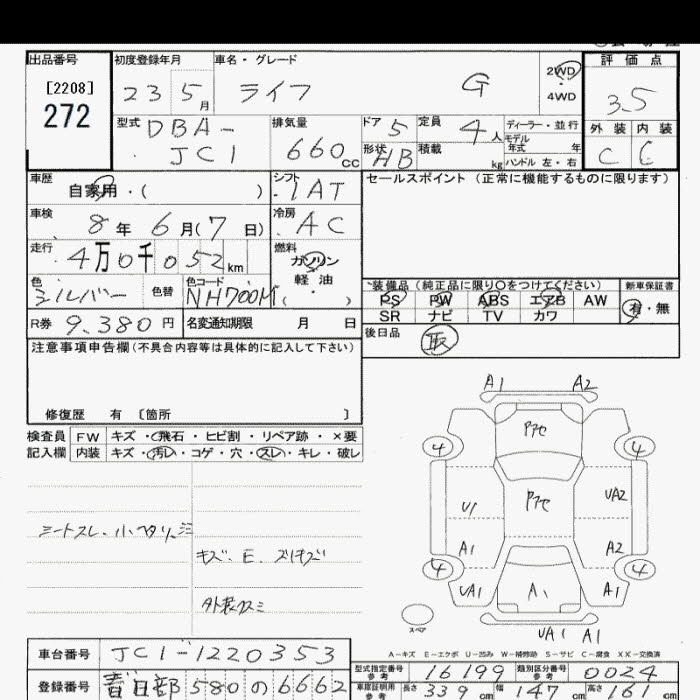 出品番号
[2208]
272
初度登録年月
23 5月
車名・グレード
ライフ G
2WD
4WD
評価点
3.5
外装 内装
C C
型式
DBA-
JC1
排気量
660cc
ドア 5
定員 4人
形状 HB
積載 kg
ディーラー・並行
モデル
年式 年
ハンドル 左・右
車歴
自家用・( )
シフト
IAT
セールスポイント(正常に機能するものに限ります)
車検
8年 6月(7日)
冷房
AC
走行
4万0千052km
燃料
ガソリン
軽油
( ・ )
色
シルバー
色替
色コード
NH700M
装備品(純正品に限り○をつけてください)
PS PW ABS エアB AW
SR ナビ TV カワ
新車保証書
有・無
R券 9,380円
名変通知期限 月 日
後日品
取
注意事項申告欄(不具合内容等は具体的に記入して下さい)
修復歴 有 〔箇所 〕
検査員
記入欄
FW キズ・飛石・ヒビ割・リペア跡・×要
内装 キズ・汚レ・コゲ・穴・スレ・キレ・破レ
シートスレ、小ヘタリ、シミ
キズ、E、スリキズ
外装クスミ
A1 A2
P7セ
4 4
U1 P7セ UA2
A1 A2
4 4
UA1 A1 A1
スペア
UA1 A1
A-キズ E-エクボ U-凹み W-補修跡 S-サビ C-腐食 XX-交換済
車台番号 JC1-1220353
型式指定番号
参考
16199
類別区分番号
参考
0024
登録番号 春日部 580 の 6662
車庫証明用
参考
長さ 339cm 幅 147cm 高さ